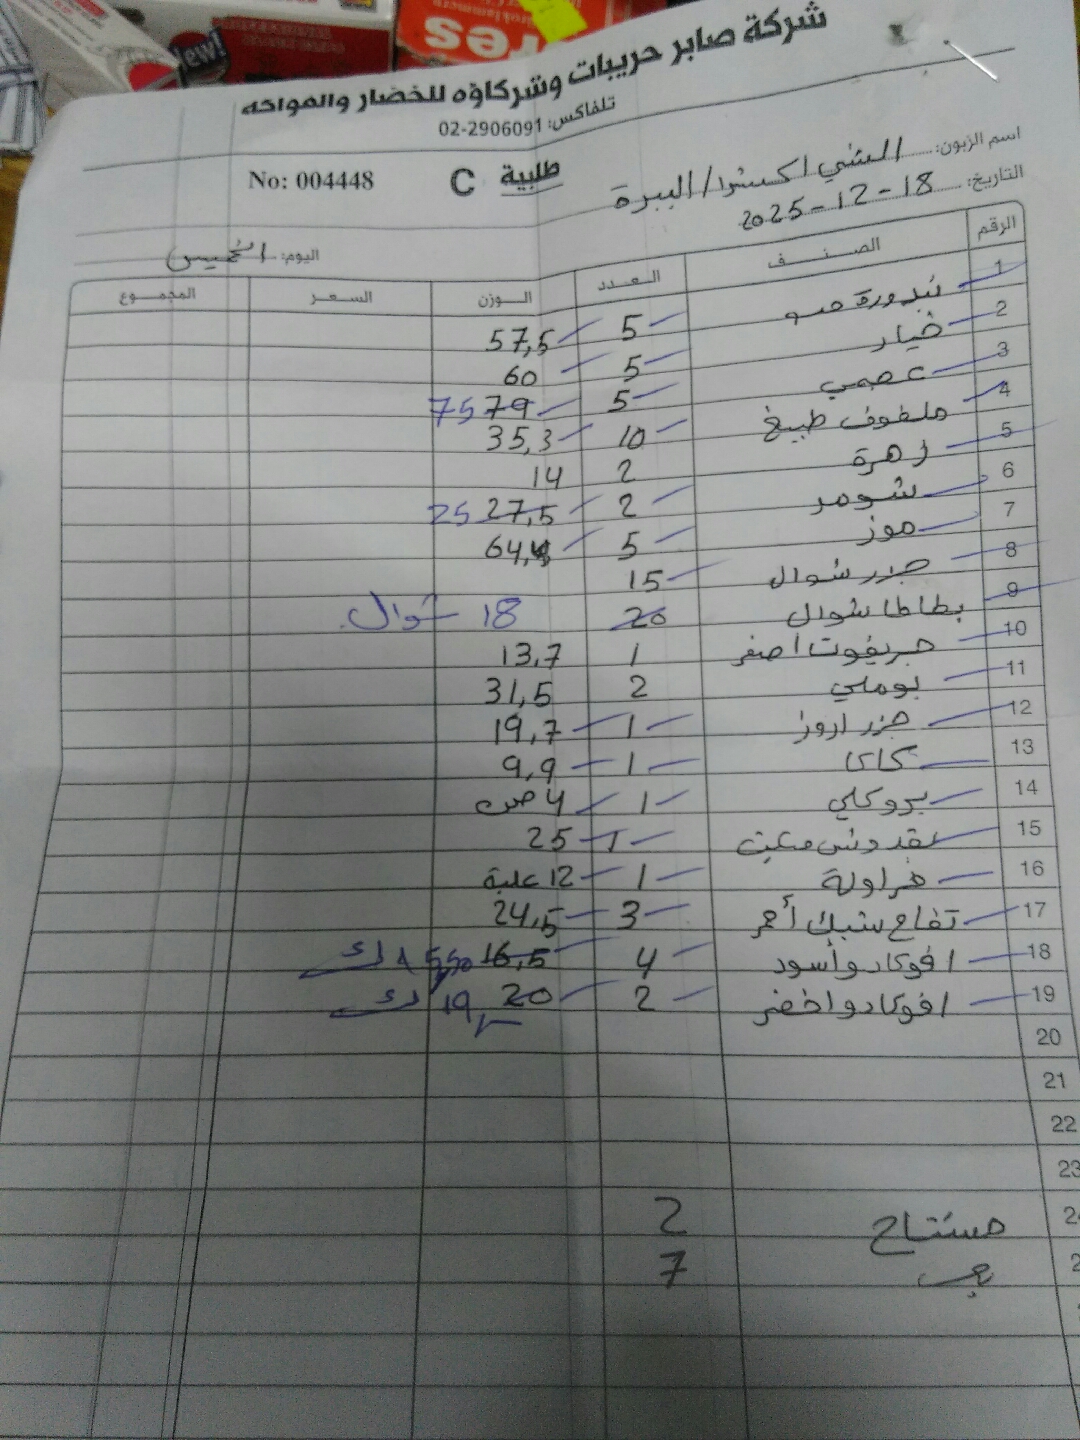 شركة صابر حريبات وشركاؤه للخضار والفواكه
تلفاكس: 02-2906091
طلبية C No: 004448
اسم الزبون: الشني اكسترا / البيرة
التاريخ: 18-12-2025
اليوم: الخميس
الرقم الصنف العدد الوزن السعر المجموع
1 بندورة 5 57,5
2 خيار 5 60
3 عجمي 5 79 75
4 ملفوف طبيخ 10 35,3
5 زهرة 2 14
6 شومر 2 27,5 25
7 موز 5
8 جزر شوال 15
9 بطاطا شوال 20 18 شوال
10 جريفوت اصفر 1 13,7
11 بوملي 2 31,5
12 جزر اروز 1 19,7
13 كاكا 1 9,9
14 بروكلي 1 4 ص
15 بقدونس 1 25
16 فراولة 1 12 علبة
17 تفاح ستبك أحمر 3 24,5
18 افوكادو أسود 4 16,5
19 افوكادو اخضر 2 20 19
20
21
22
23
24 مشتاح 2
7